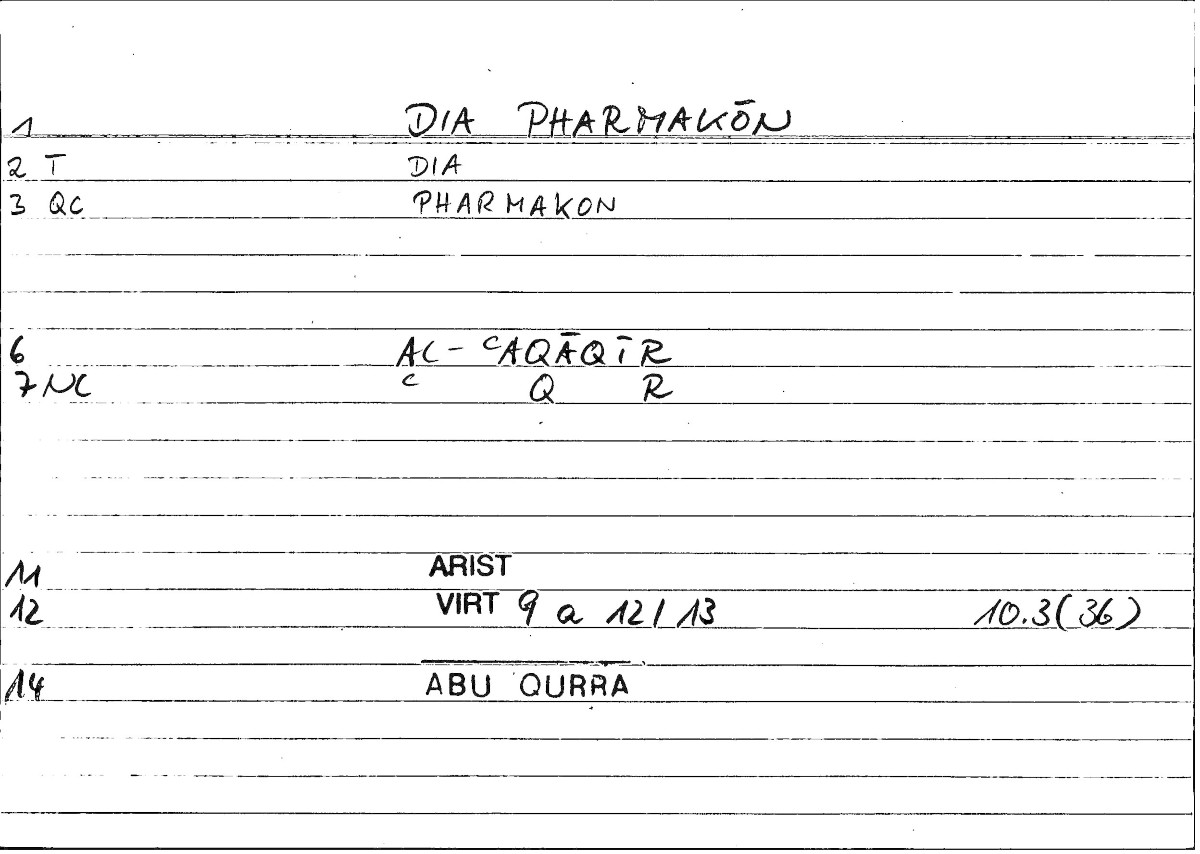 1 DIA PHARMAKŌN
2 T DIA
3 QC PHARMAKON
6 AL- ᶜAQĀQĪR
7 NC ᶜ Q R
11 ARIST
12 VIRT 9 a 12/13 10.3(36)
14 ABU QURRA